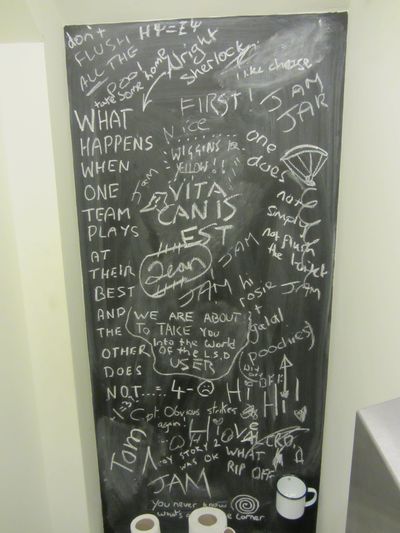 don't
FLUSH
ALL THE
poo!
take some home
Hψ=Eψ
Alright
Sherlock
I like cheese
FIRST!
JAM
JAR
WHAT
HAPPENS
WHEN
ONE
TEAM
PLAYS
AT
THEIR
BEST
AND
THE
OTHER
DOES
NOT....= 4-☹
Nice
WIGGINS IZ
YELLOW!!
Jam
VITA
CAN IS
EST
one
does
not
simply
not flush
the toilet
Jean
JAM
JAM
hi
rosie
JAM
Galal
WE ARE ABOUT
To TAKE YOU
Into the World
Of the L.S.D
USER
poodry
Hi
Hi
Cpt Obvious strikes
again!
Hi
Jam
TOY STORY 2
WAS OK
VELCRO
WHAT
RIP OFF
JAM
you never know
what's
corner